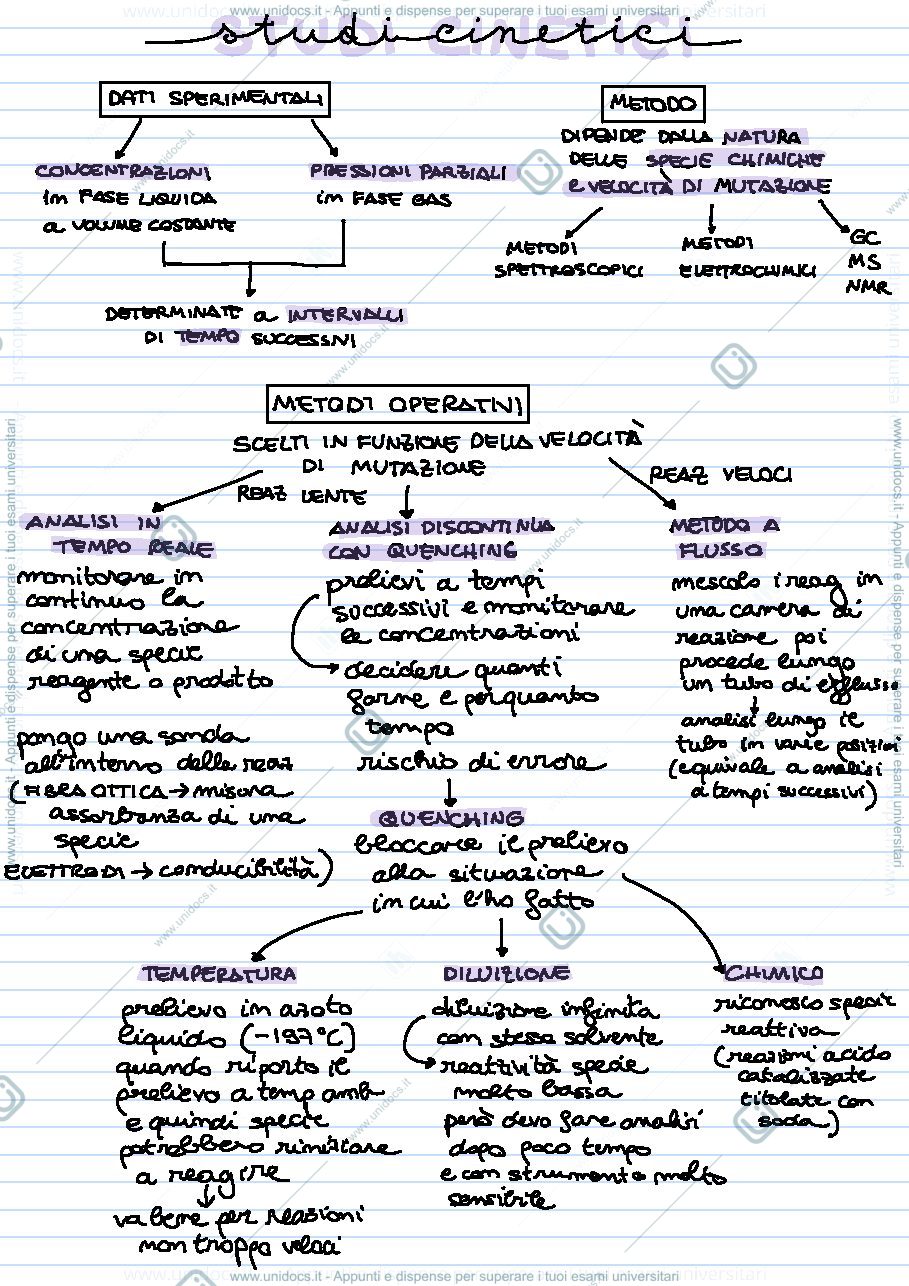 www.unidocs.it - Appunti e dispense per superare i tuoi esami universitari
studi cinetici
STUDI CINETICI
DATI SPERIMENTALI
CONCENTRAZIONI
in FASE LIQUIDA
a VOLUME COSTANTE
PRESSIONI PARZIALI
in FASE GAS
DETERMINATE a INTERVALLI
DI TEMPO SUCCESSIVI
METODO
DIPENDE DALLA NATURA
DELLE SPECIE CHIMICHE
E VELOCITÀ DI MUTAZIONE
METODI
SPETTROSCOPICI
METODI
ELETTROCHIMICI
GC
MS
NMR
METODI OPERATIVI
SCELTI IN FUNZIONE DELLA VELOCITÀ
DI MUTAZIONE
REAZ LENTE
REAZ VELOCI
ANALISI IN
TEMPO REALE
monitorare in
continuo la
concentrazione
di una specie
reagente o prodotto
pongo una sonda
all'interno della reaz
(FIBRA OTTICA → misura
assorbanza di una
specie
ELETTRODI → conducibilità)
ANALISI DISCONTINUA
CON QUENCHING
prelievi a tempi
successivi e monitorare
le concentrazioni
decidere quanti
farne e per quanto
tempo
rischio di errore
QUENCHING
bloccare il prelievo
alla situazione
in cui l'ho fatto
METODO A
FLUSSO
mescolo i reag in
una camera di
reazione poi
procede lungo
un tubo di efflusso
analisi lungo il
tubo in varie posizioni
(equivale a analisi
a tempi successivi)
TEMPERATURA
prelievo in azoto
liquido (-197°C)
quando riporto il
prelievo a temp amb
e quindi specie
potrebbero riniziare
a reagire
va bene per reazioni
non troppo veloci
DILUIZIONE
diluizione infinita
con stesso solvente
reattività specie
molto bassa
però devo fare analisi
dopo poco tempo
e con strumento molto
sensibile
CHIMICO
riconosco specie
reattiva
(reazioni acido
catalizzate
titolate con
soda)
www.unidocs.it - Appunti e dispense per superare i tuoi esami universitari